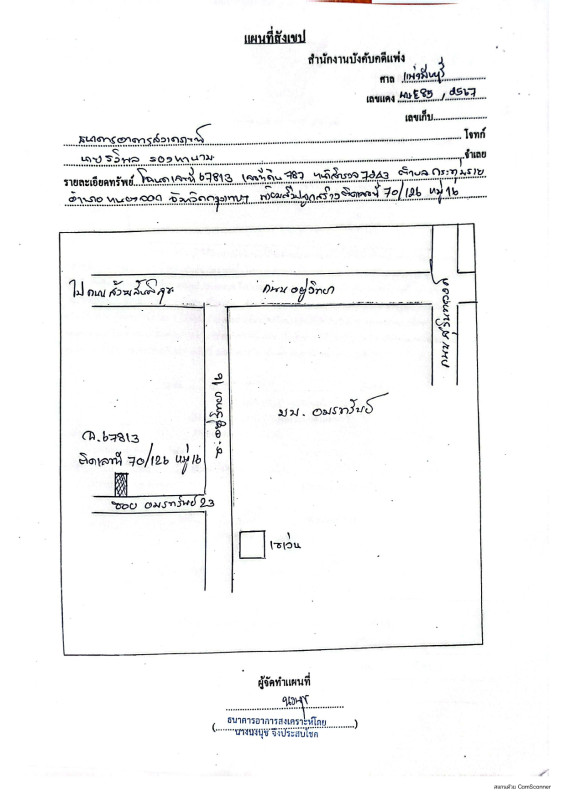 แผนที่สังเขป
สำนักงานบังคับคดีแพ่ง
ศาล แพ่งมีนบุรี
เลขแดง
เลขเก็บ
ธนาคารอาคารสงเคราะห์ โจทก์
จำเลย
รายละเอียดทรัพย์ โฉนดเลขที่ 67813 เลขที่ดิน 787 หน้าสำรวจ 7343 ตำบล กระทุ่มราย
อำเภอ หนองจอก จังหวัดกรุงเทพฯ พร้อมสิ่งปลูกสร้างติดเลขที่ 70/126 หมู่ 16
ไป ถนน ถนน อยู่วิทยา
ซ. อยู่วิทยา 16
มบ. อมรทรัพย์
ฉ.67813
ติดเลขที่ 70/126 หมู่ 16
ซอย อมรทรัพย์ 23
เซเว่น
ผู้จัดทำแผนที่
ธนาคารอาคารสงเคราะห์โดย
นางนงนุช จึงประสบโชค
สแกนด้วย CamScanner